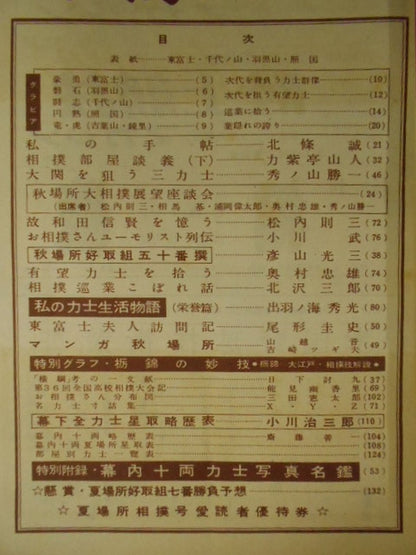 目次
表紙 東富士・千代ノ山・羽黒山・照国
グラビア
豪勇(東富士) (5)
磐石(羽黒山) (6)
闘志(千代ノ山) (7)
円熟(照国) (8)
竜・虎(吉葉山・鏡里) (9)
次代を背負う力士群像 (10)
次代を担う有望力士 (12)
巡業に拾う (14)
葉隠れの誇り (20)
私の手帖 北條誠 (21)
相撲部屋談義(下) 力紫亭山人 (32)
大関を狙う三力士 秀ノ山勝一 (46)
秋場所大相撲展望座談会 (24)
(出席者)松内則三・相馬基・浦岡偉太郎・奥村忠雄・秀ノ山勝一
故和田信賢を憶う 松内則三 (72)
お相撲さんユーモリスト列伝 小川武 (76)
秋場所好取組五十番撰 彦山光三 (38)
有望力士を拾う 奥村忠雄 (74)
相撲巡業こぼれ話 北沢三郎 (70)
私の力士生活物語(栄誉篇) 出羽ノ海秀光 (80)
東富士夫人訪問記 尾形圭史 (50)
マンガ秋場所 山越普 吉崎ツギ夫 (49)
特別グラフ・栃錦の妙技 栃錦 大江戸・相撲技解説
「横綱」考の一文献 日下封九 (37)
第36回全国高校相撲大会記 能見幽香里 (69)
お相撲さん分布図 三田憲太郎 (102)
名力士寸話集 X・Y・Z (71)
幕下全力士星取略歴表 小川治三郎 (110)
幕内十両略歴表 斎藤善一 (104)
幕内十両夏場所星取表 (108)
部屋別力士一覧表 (124)
特別附録・幕内十両力士写真名鑑 (53)
☆懸賞・夏場所好取組七番勝負予想 (132)
☆夏場所相撲号愛読者優待券☆